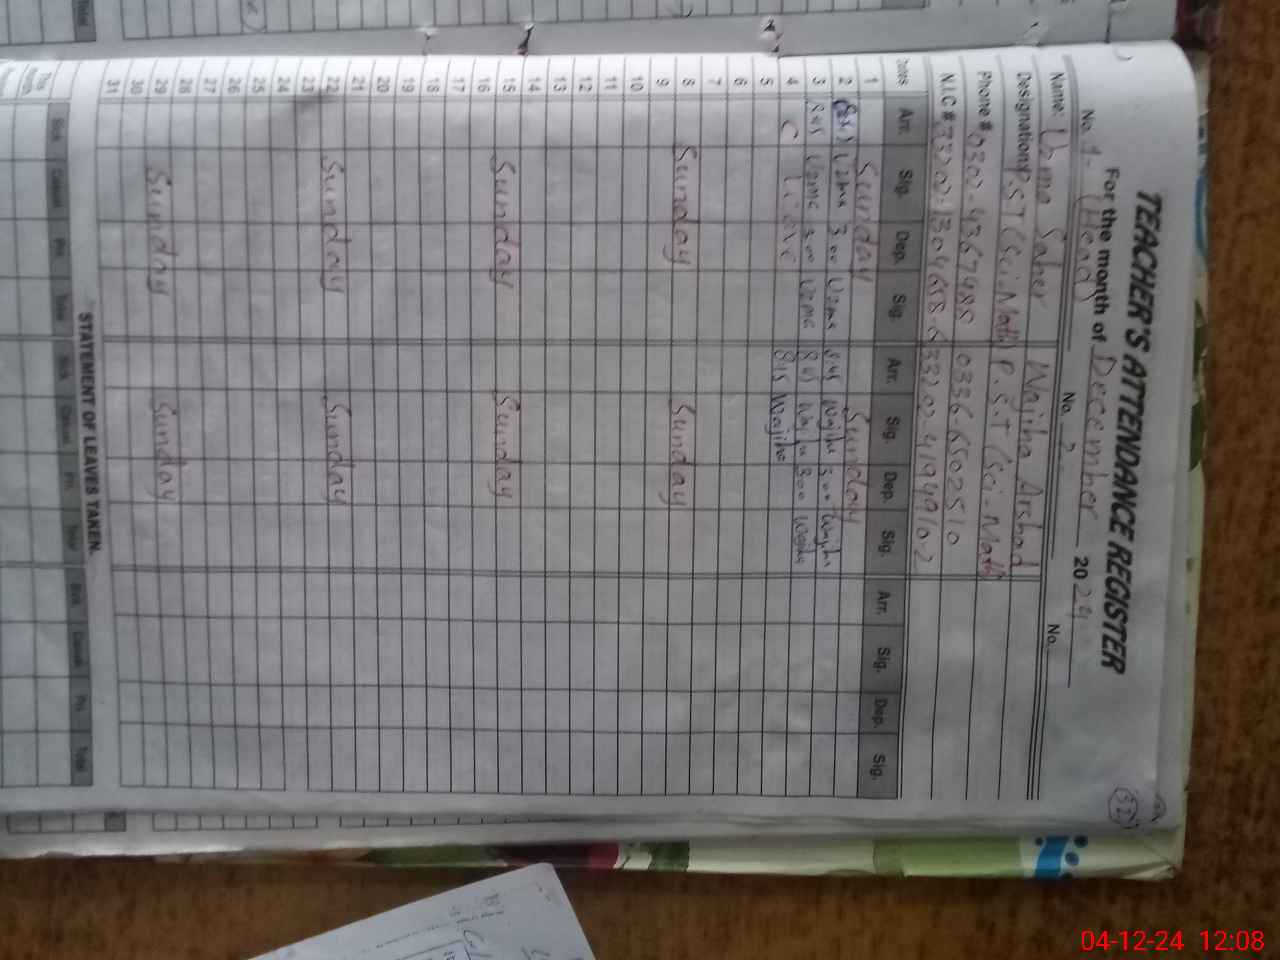 TEACHER'S ATTENDANCE REGISTER
52
For the month of December 2024
No. 1- (Head) No. 2 No.
Name: Uzma Saher Wajiha Arshad
Designation: P.S.T (Sci-Math) P.S.T (Sci-Math)
Phone # 0302-4367488 0336-6502510
N.I.C # 33202-1304658-6 33202-4194910-2
Dates Arr. Sig. Dep. Sig. Arr. Sig. Dep. Sig. Arr. Sig. Dep. Sig.
1 Sunday Sunday
2 8:45 Uzma 3:00 Uzma 8:45 Wajiha 3:00 Wajiha
3 8:45 Uzma 3:00 Uzma 8:45 Wajiha 3:00 Wajiha
4 C Leave 8:45 Wajiha
5
6
7
8 Sunday Sunday
9
10
11
12
13
14
15 Sunday Sunday
16
17
18
19
20
21
22 Sunday Sunday
23
24
25
26
27
28
29 Sunday Sunday
30
31
STATEMENT OF LEAVES TAKEN.
Sick Casual Pri. Total Sick Casual Pri. Total Sick Casual Pri. Total
This month
04-12-24 12:08